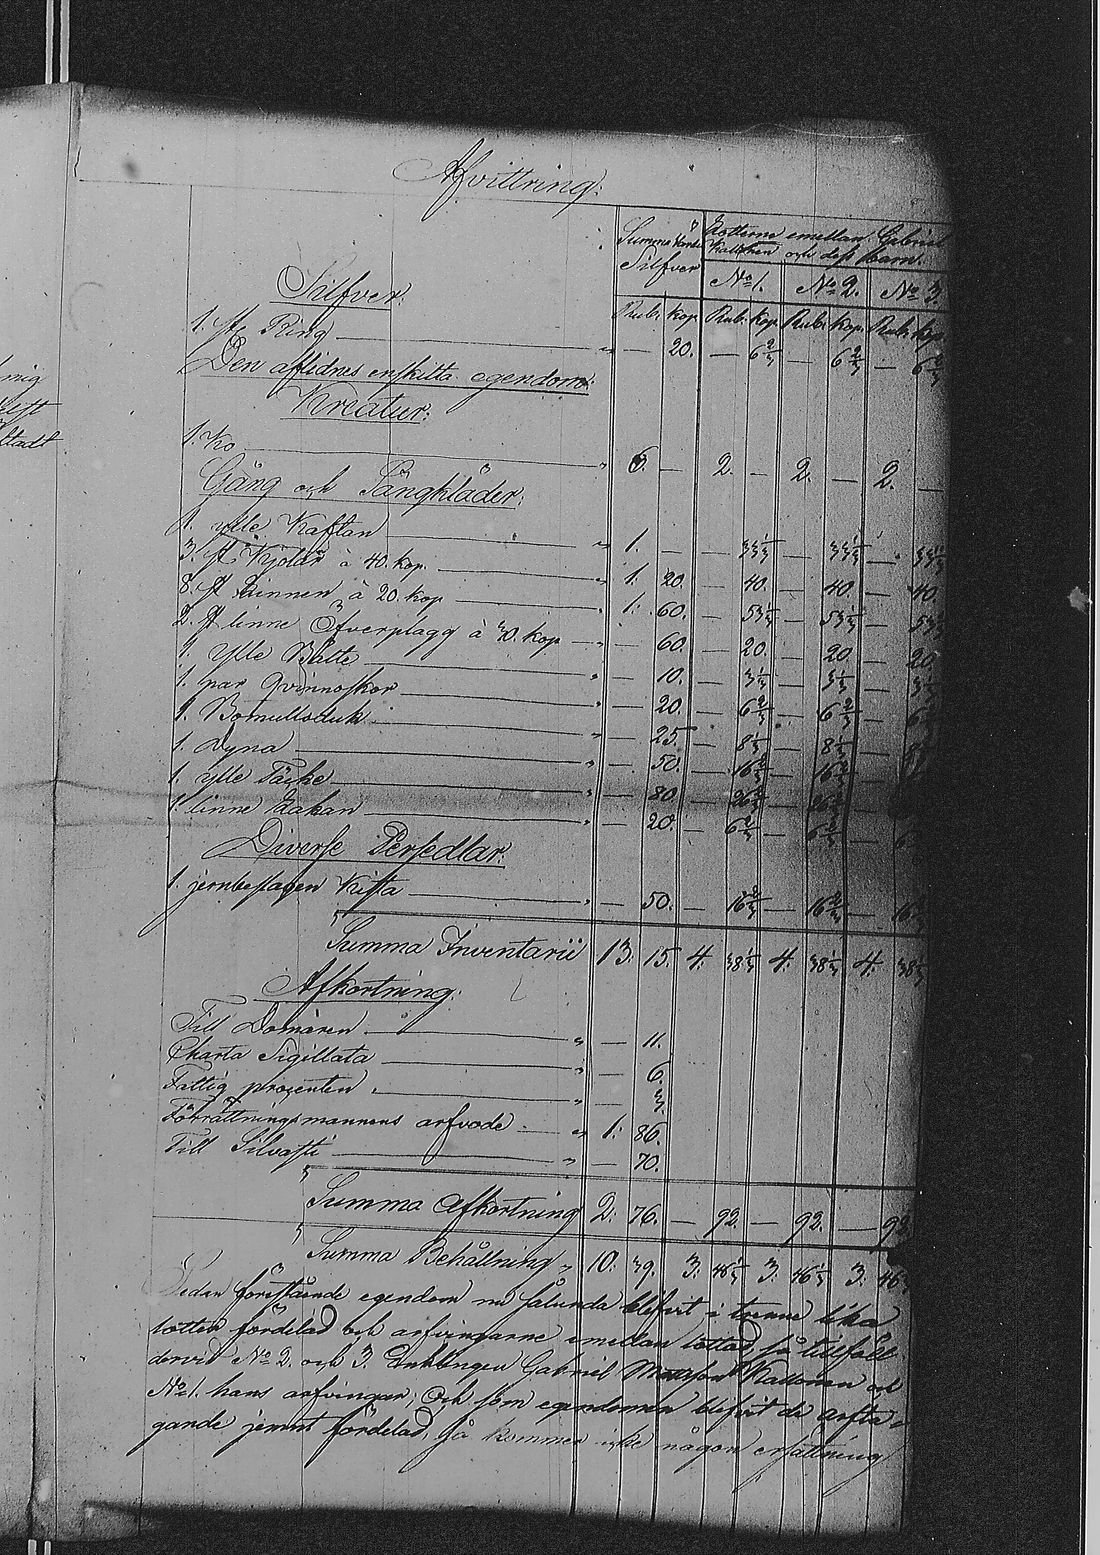 mig
Afvittring:
Summa
Silfver
Lotterne emellan Gabriel
Kallonen och dess barn.
No 1. No 2. No 3.
Rub: kop Rub: kop Rub: kop Rub: kop
Silfver:
1. st. Ring " — 20. — 6 2/3 — 6 2/3 — 6 2/3
Den aflidnes enskilta egendom:
Kreatur:
1. Ko " 6. — 2. — 2. — 2. —
Gång och Sängkläder:
1. ylle Kaftan " 1. — — 33 1/3 — 33 1/3 — 33 1/3
3. st Kjolar à 40. kop. " 1. 20. — 40. — 40. — 40.
8. st Linnen à 20. kop " 1: 60. — 53 1/3 — 53 1/3 — 53 1/3
2. st linne Öfverplagg à 30. kop — 60. — 20. — 20. — 20
1. ylle Bälte " — 10. — 3 1/3 — 3 1/3 — 3 1/3
1. par Qvinnoskor — 20. — 6 2/3 — 6 2/3 — 6 2/3
1. Bomullsduk " — 25. — 8 1/3 — 8 1/3 — 8
1. Dyna " — 50. — 16 2/3 — 16 2/3
1. ylle Täcke " — 80. — 26 2/3 — 26 2/3
1 linne Lakan " — 20. — 6 2/3 — 6 2/3 — 6
Diverse Persedlar.
1. jernbeslagen Kista " — 50. — 16 2/3 — 16 2/3 — 16 2/3
Summa Inventarii 13. 15. 4. 38 1/3 4. 38 1/3 4. 38 1/3
Afkortning:
Till Domaren " — 11.
Charta Sigillata " — 6.
Fattig procenten " —
Förrättningsmannens arfvode " 1: 86.
Till " — 70.
Summa Afkortning 2: 76. — 92. — 92. — 92.
Summa Behållning " 10: 39. 3: 46 1/3 3: 46 1/3 3. 46
Sedan förestående egendom nu sålunda blifvit i trenne lika
lotter fördelad och arfvingarne emellan lottad, så tillföll
dervid No 2. och 3. Enklingen Gabriel Mattsson Kallonen och
No 1. hans arfvingar; Och som egendomen blifvit de arfta-
gande jemnt fördelad, så kommer icke någon ersättning